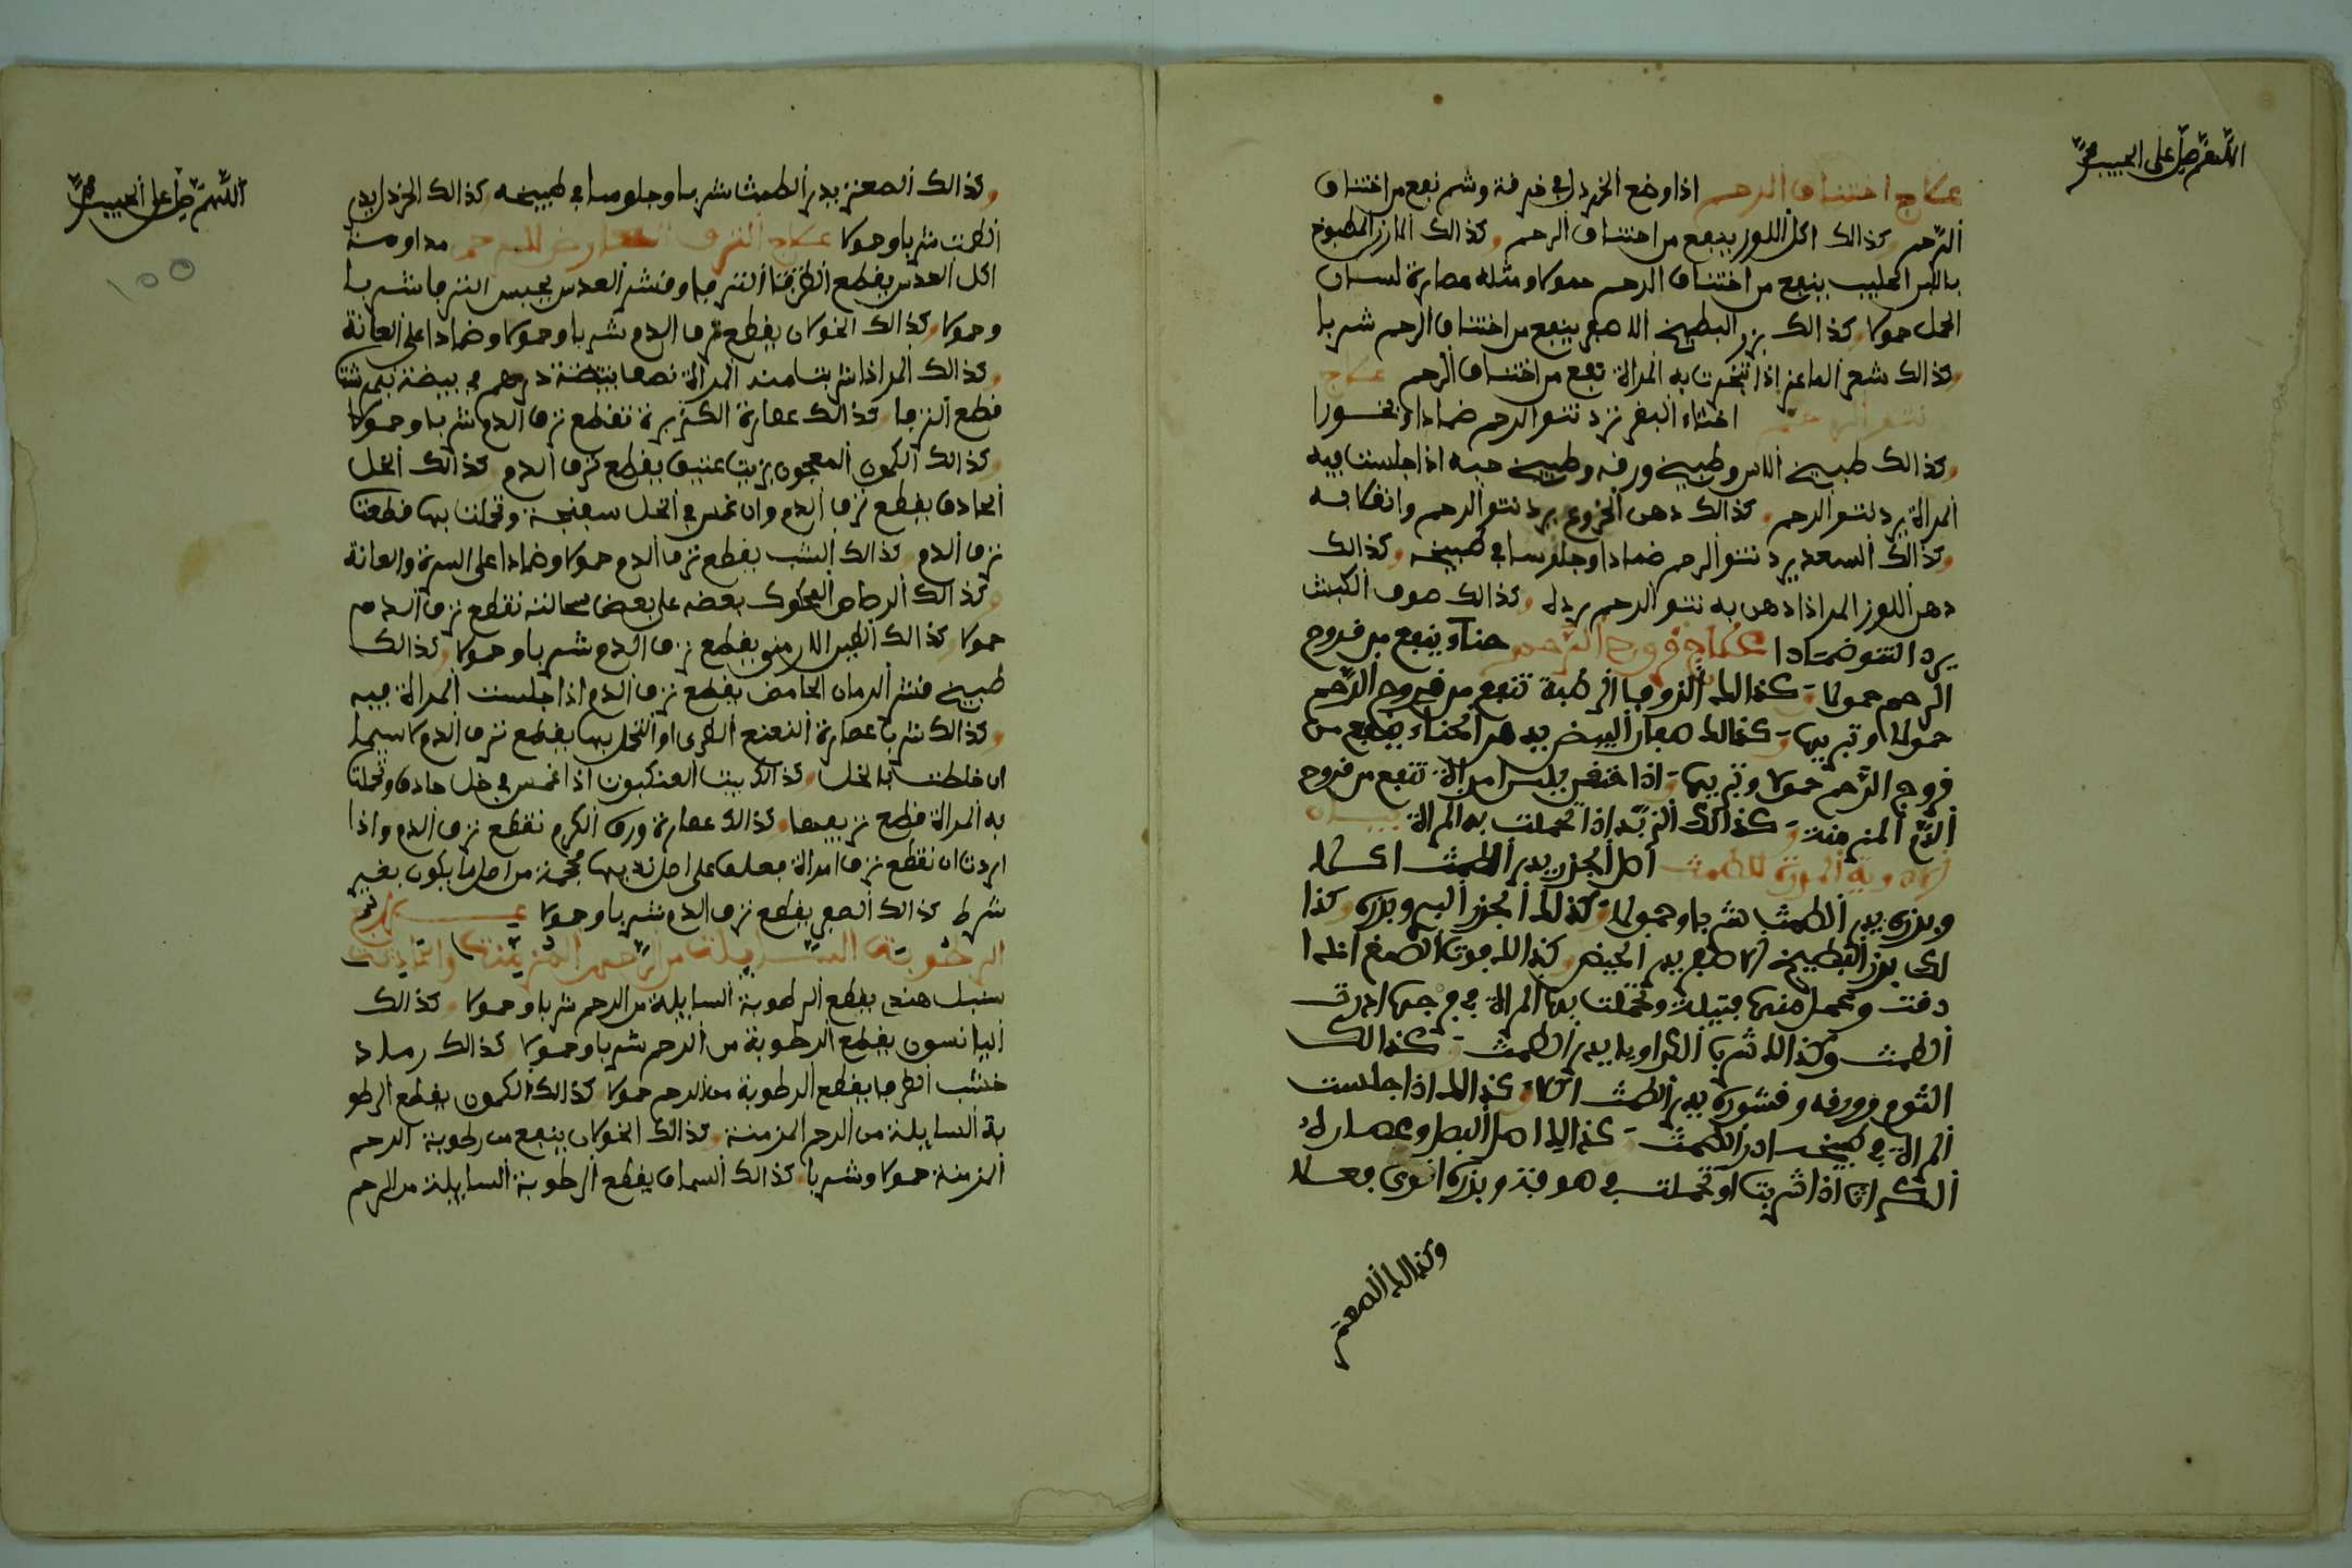 اللهم صل على الحبيب محمد
علاج اختناق الرحم اذا وضع الخردل في خرقة وشم نفع من اختناق
الرحم وكذالك اكل اللوز ينفع من اختناق الرحم وكذالك المطبوخ
باللبن الحليب ينفع من اختناق الرحم حمولا ومثله عصارة لسان
الحمل حمولا وكذالك بزر البطيخ الاصفر ينفع من اختناق الرحم شربا
وكذالك شعر الماعز اذا تبخرت به المراة نفع من اختناق الرحم علاج
نتو الرحم اختاء البقر ترد نتو الرحم ضمادا وبخورا
وكذالك طبيخ الاس وطبيخ ورقه وطبيخ حبه اذا جلست فيه
المراة يرد نتو الرحم وكذالك دهن الخروع يرد نتو الرحم وانقلابه
وكذالك السعد يرد نتو الرحم ضمادا وجلوسا في طبيخه وكذالك
دهن اللوز المر اذا دهن به نتو الرحم يرده وكذالك صوف الكبش
يرد النتو ضمادا علاج قروح الرحم حناء ينفع من قروح
الرحم حمولا وكذالك الزوفا الرطبة تنفع من قروح الرحم
حمولا وكذالك البيض بدهن الحناء ينفع من
قروح الرحم حمولا اذا بلبن امراة تنفع من قروح
الرحم المزمنة وكذالك الزبد اذا تحملت به المراة بيان
الادوية المدرة للطمث اكل الجزر يدر الطمث اكلا
وبزره يدر الطمث شربا وحمولا وكذالك الجزر البري وبزره وكذا
لك بزر البطيخ الاصفر يدر الحيض وكذالك قوة الصبغ اذا
دقت وعمل منها فتيلة وتحملت بها المراة في فرجها ادرت
الطمث وكذالك شرب الكراويا يدر الطمث وكذالك
الثوم وورقه وقشوره يدر الطمث اكلا وكذالك اذا جلست
المراة في طبيخه ادر الطمث وكذالك اكل البصل وعصارة
الكراث اذا شربت او تحملت في صوفة وبزره اقوى فعلا
وكذالك الصعتر
اللهم صل على الحبيب محمد
100
وكذالك الصعتر يدر الطمث شربا وجلوسا في طبيخه وكذالك الخردل يدر
الطمث شربا وحمولا علاج النزف العارض للرحم مداومة
اكل العدس يقطع النزف وقشر العدس يحبس النزف شربا
وحمولا وكذالك الخولان يقطع نزف الدم شربا وحمولا وضمادا على العانة
وكذالك المر اذا شربت منه المراة نصف درهم في بيضة نمرشت
قطع النزف وكذالك عصارة الكزبرة تقطع نزف الدم شربا وحمولا
وكذالك الكمون المعجون بزيت عتيق يقطع نزف الدم وكذالك الخل
الحاذق يقطع نزف الدم وان غمس في الخل سفنجة وتحملت بها قطعت
نزف الدم وكذالك الشب يقطع نزف الدم حمولا وضمادا على السرة والعانة
وكذالك الرصاص المحكوك بعضه على بعض تقطع نزف الدم
حمولا وكذالك الطين الارمني يقطع نزف الدم شربا وحمولا وكذالك
طبيخ قشر الرمان الحامض يقطع نزف الدم اذا جلست المراة فيه
وكذالك شرب عصارة النعنع الطري او التحمل بها يقطع نزف الدم لاسيما
ان خلطت بالخل وكذالك بيت العنكبوت اذا غمس في خل حاذق وتحملت
به المراة قطع نزيفها وكذالك عصارة ورق الكرم تقطع نزف الدم واذا
اردت ان تقطع نزف امراة فعلق على اصل ثديها محجمة من اعظم ما يكون بغير
شرط وكذالك الصمغ يقطع نزف الدم شربا وحمولا علاج
الرطوبة السايلة من الرحم المزمنة
سنبل هندي يقطع الرطوبة السايلة من الرحم شربا وحمولا وكذالك
اليانسون يقطع الرطوبة من الرحم شربا وحمولا وكذالك رماد
خشب الطرفا يقطع الرطوبة من الرحم حمولا وكذالك الكمون يقطع الرطو
بة السايلة من الرحم المزمنة وكذالك الخولان ينفع من رطوبة الرحم
المزمنة حمولا وشربا وكذالك السماق يقطع الرطوبة السايلة من الرحم